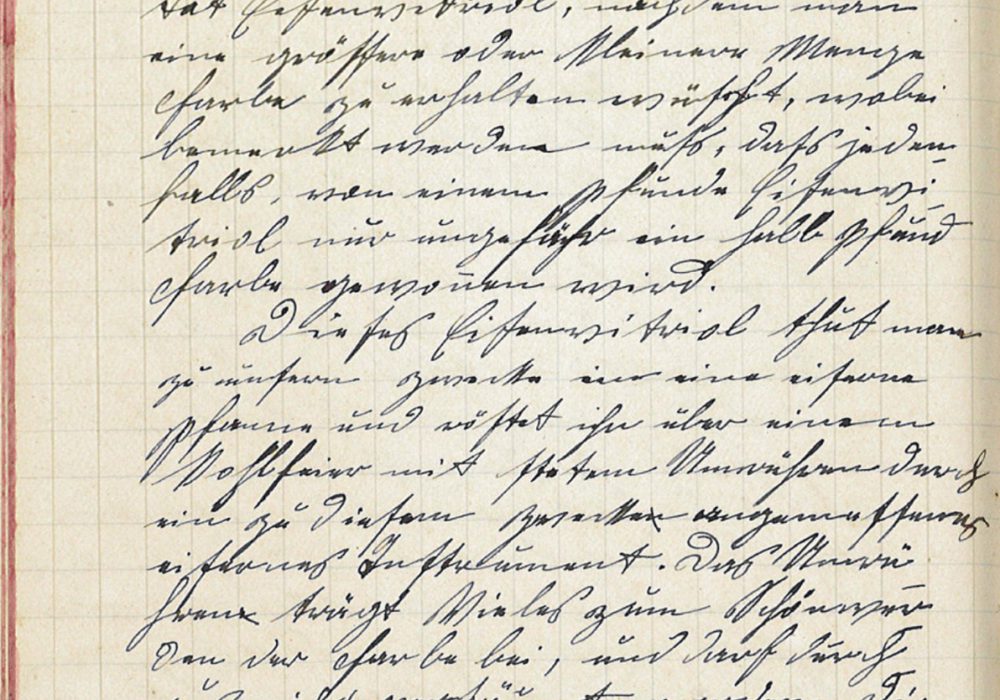 tät Eisenvitriol, nachdem man
eine grössere oder kleinere Menge
Farbe zu erhalten wünscht, wobei
bemerkt werden muss, dass jeden-
falls, von einem Pfunde Eisenvi-
triol nur ungefähr ein halb Pfund
Farbe gewonnen wird.
Dieses Eisenvitriol thut man
zu unsern Zwecke in eine eiserne
Pfanne und röstet ihn über einem
Kohlfeier mit stetem Umrühren durch
ein zu diesem Zwecke angemessenes
eisernes Instrument. Das Umrü-
hren trägt Vieles zum Schönwer-
den der Farbe bei, und darf durch